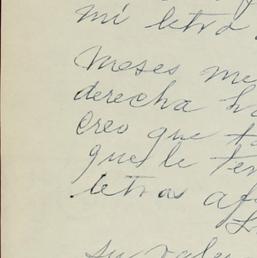 mi letra
meses me
derecha ha
creo que t
que le ten
letras af
su valu